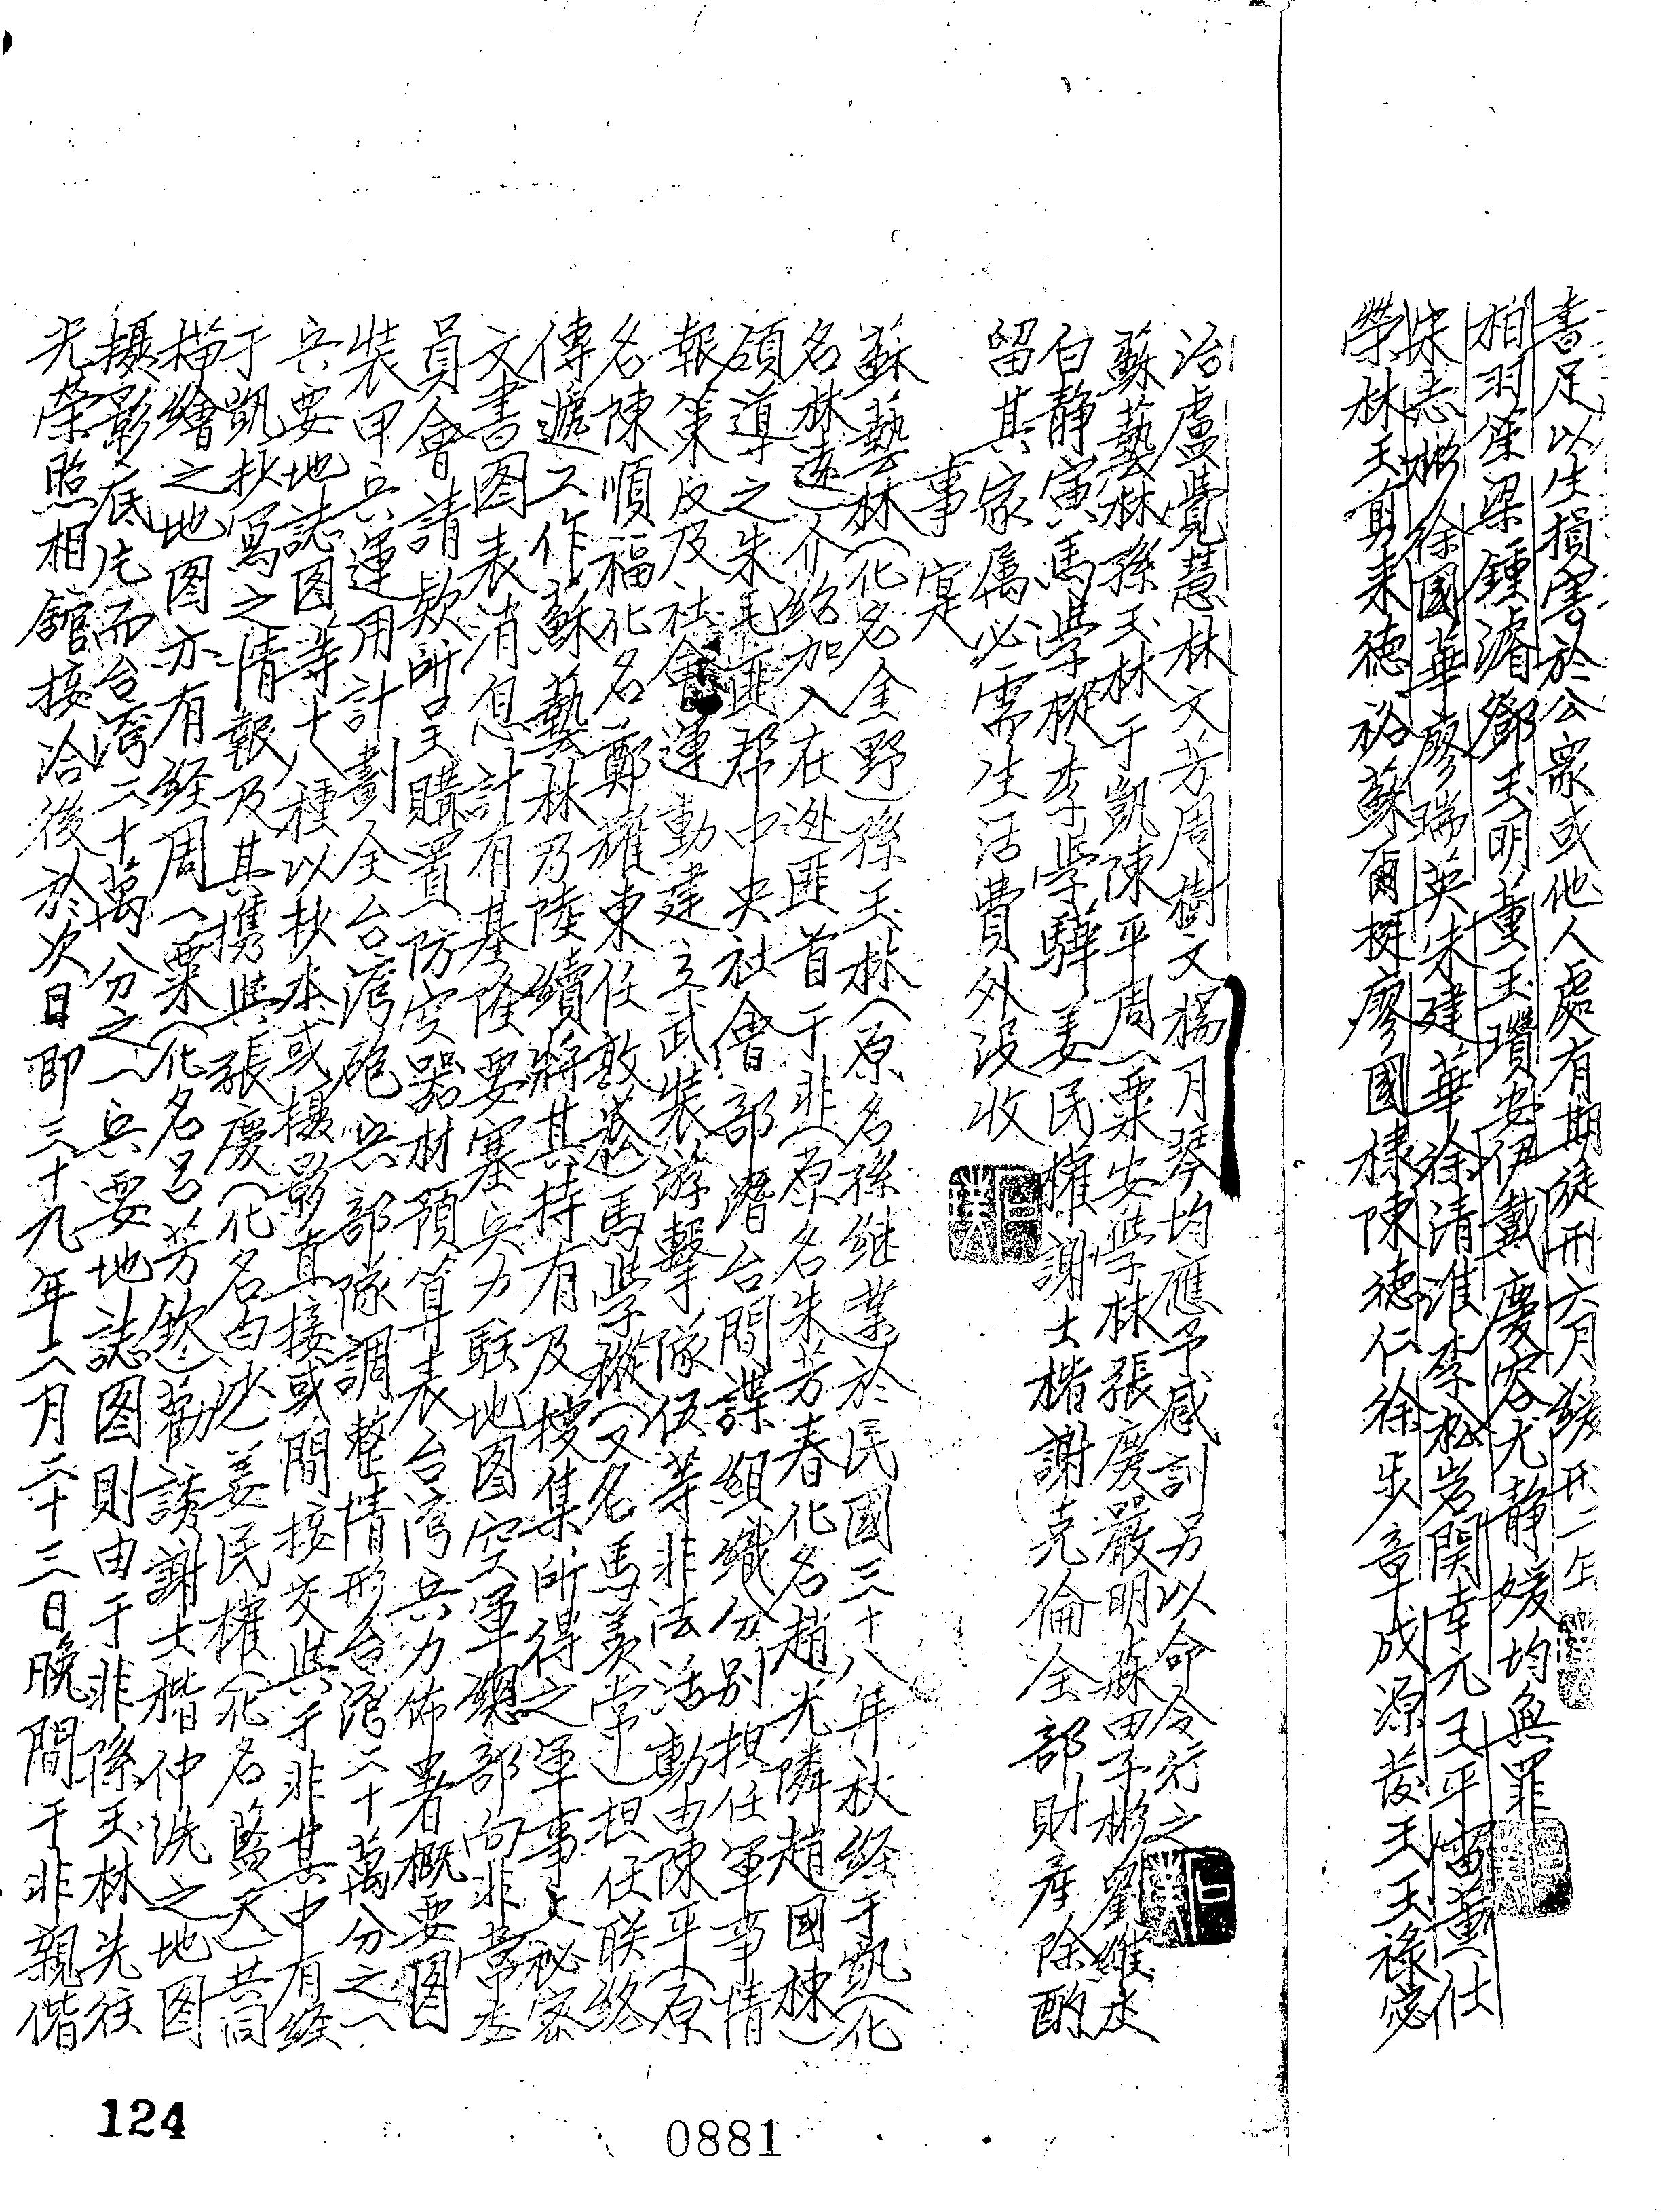 書足以生損害於公眾或他人處有期徒刑六月緩刑二年
相羽偉梁鍾濬鄧玉明董玉瓚安伊戴慶容尤靜媛均無罪
朱志彬徐國華廖瑞英朱建華徐清淮李松岩關幸元王平雷董仕
榮林玉剪耒德裕蘇爾挺廖國棣陳德仁徐 章成源 王玉祿宓
治盧覺慧林文芳周樹文楊月琴均應予感訓另以命令行之
蘇藝林孫玉林于凱陳平周一粟安學林張慶嚴明森田子彬劉維
白靜寅馬學樅李學驊姜民權謝士楷謝克倫全部財產除酌
留其家屬必需生活費外沒收
事實
蘇藝林(化名金野)孫玉林(原名孫繼業於民國三十八年秋経于凱(化
名林遠)介紹加入在逃匪首于非(原名朱芳春化名趙光隣趙國棟)
領導之朱毛匪帮中央社會部潛台間諜組織分別担任軍事情
報策反及社會運動建立武裝游擊隊伍等非法活動由陳平(原
名陳順福化名鄭耀東任敦 馬學樅(又名馬羡常)担任联絡
傳遞工作蘇藝林乃陸續將其持有及搜集所得之軍事上秘密
文書图表消息計有基隆要塞兵力駐地图空軍總部向非常委
員會請欵所呈購置防空器材預算表台湾兵力佈署概要图
裝甲兵運用計劃全台湾砲兵部隊調整情形台湾二十萬分之一
兵要地誌图等十八種以抄本或攝影直接或間接交與于非其中有経
于凱抄寫之情報及其携與張慶(化名白沙)姜民權(化名藍天)昔
描繪之地图亦有経周一粟(化名呂芳欽)勸誘謝士楷仲洗之地图
攝影底片而台湾二十萬分之一兵要地誌图則由于非孫玉林先往
光榮照相舘接洽後於次日即三十九年二月二十三日晚間于非親偕
124
0881